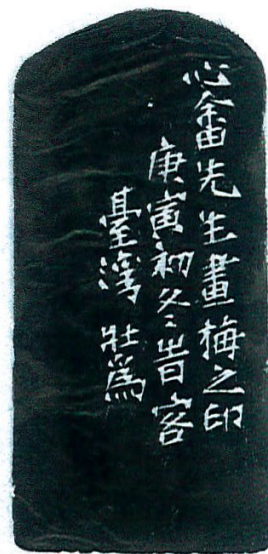 心畬先生畫梅之印
庚寅初冬時客
臺灣壯為